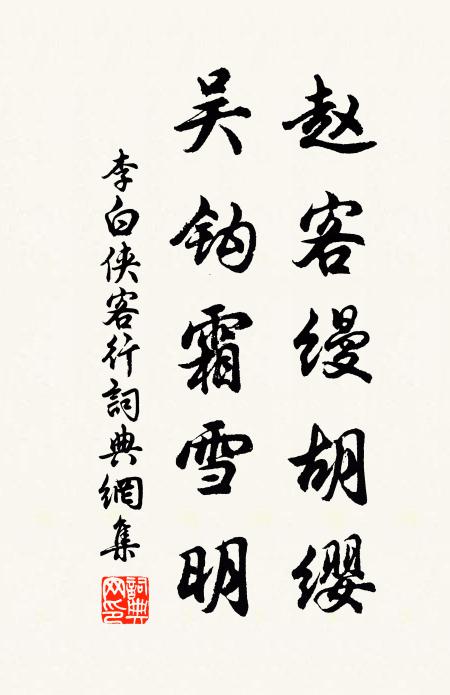 赵客缦胡缨
吴钩霜雪明
李白侠客行詞典網集
詞典网印